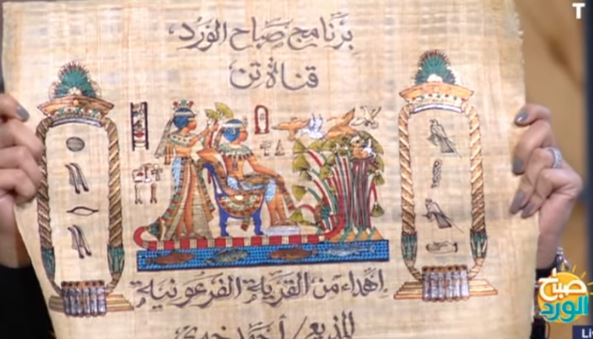 T
برنامج صباح الورد
قناة تن
إهداء من القرية الفرعونية
للمذيع / أحمد
صباح
الورد
Li